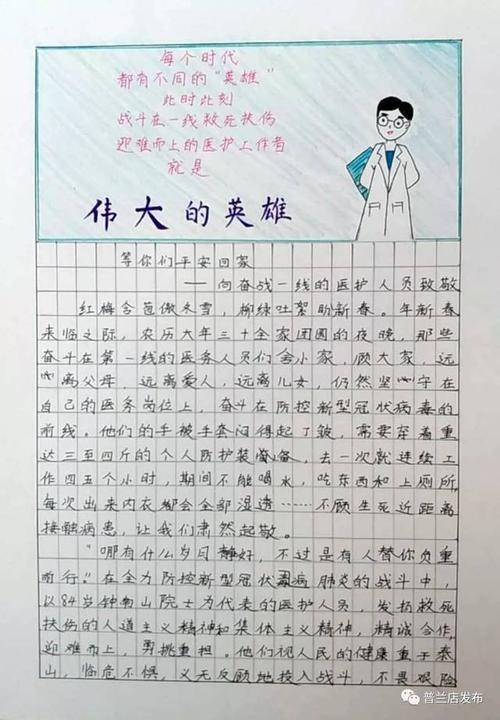 每个时代
都有不同的“英雄”
此时此刻
战斗在一线救死扶伤
迎难而上的医护工作者
就是
伟大的英雄
等你们平安回家
——向奋战一线的医护人员致敬
红梅含苞傲冬雪，柳绿吐絮盼新春。年新春
来临之际，农历大年三十全家团圆的夜晚，那些
奋斗在第一线的医务人员们舍小家，顾大家，远
离父母，远离爱人，远离儿女，仍然坚守在
自己的医务岗位上，奋斗在防控新型冠状病毒的
前线。他们的手被手套闷得起了皱，需要穿着重
达三至四斤的个人防护装备，去一次就连续工
作四五个小时，期间不能喝水，吃东西和上厕所，
每次出来内衣都会全部湿透……不顾生死近距离
接触病患，让我们肃然起敬。
“哪有什么岁月静好，不过是有人替你负重
前行。”在全力防控新型冠状病毒肺炎的战斗中，
以84岁钟南山院士为代表的医护人员，发扬救死
扶伤的人道主义精神和集体主义精神，精诚合作，
迎难而上，勇挑重担。他们视人民的健康重于泰
山，临危不惧，义无反顾地投入战斗，不畏艰险
普兰店发布